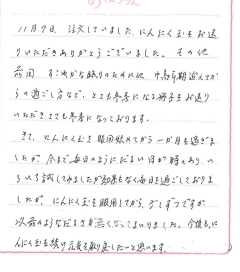 11月7日、注文していました、にんにく玉をお送
りいただきありがとうございました。その他
前回、すこやかな眠りのために他、中高年期迎えてか
らの過ごし方など、とても参考になる冊子をお送り
いただきとても参考になっております。
さて、にんにく玉を服用始めてから一か月を過ぎま
したが、今まで毎日のようにだるい日が時々あり、い
ろいろ試してみましたが効果もなく毎日を過ごしておりま
したが、にんにく玉を服用してから、少しずつですが
以前のようなだるさが無くなってまいりました。今後も、に
んにく玉を続け元気を取り戻したーと思います。